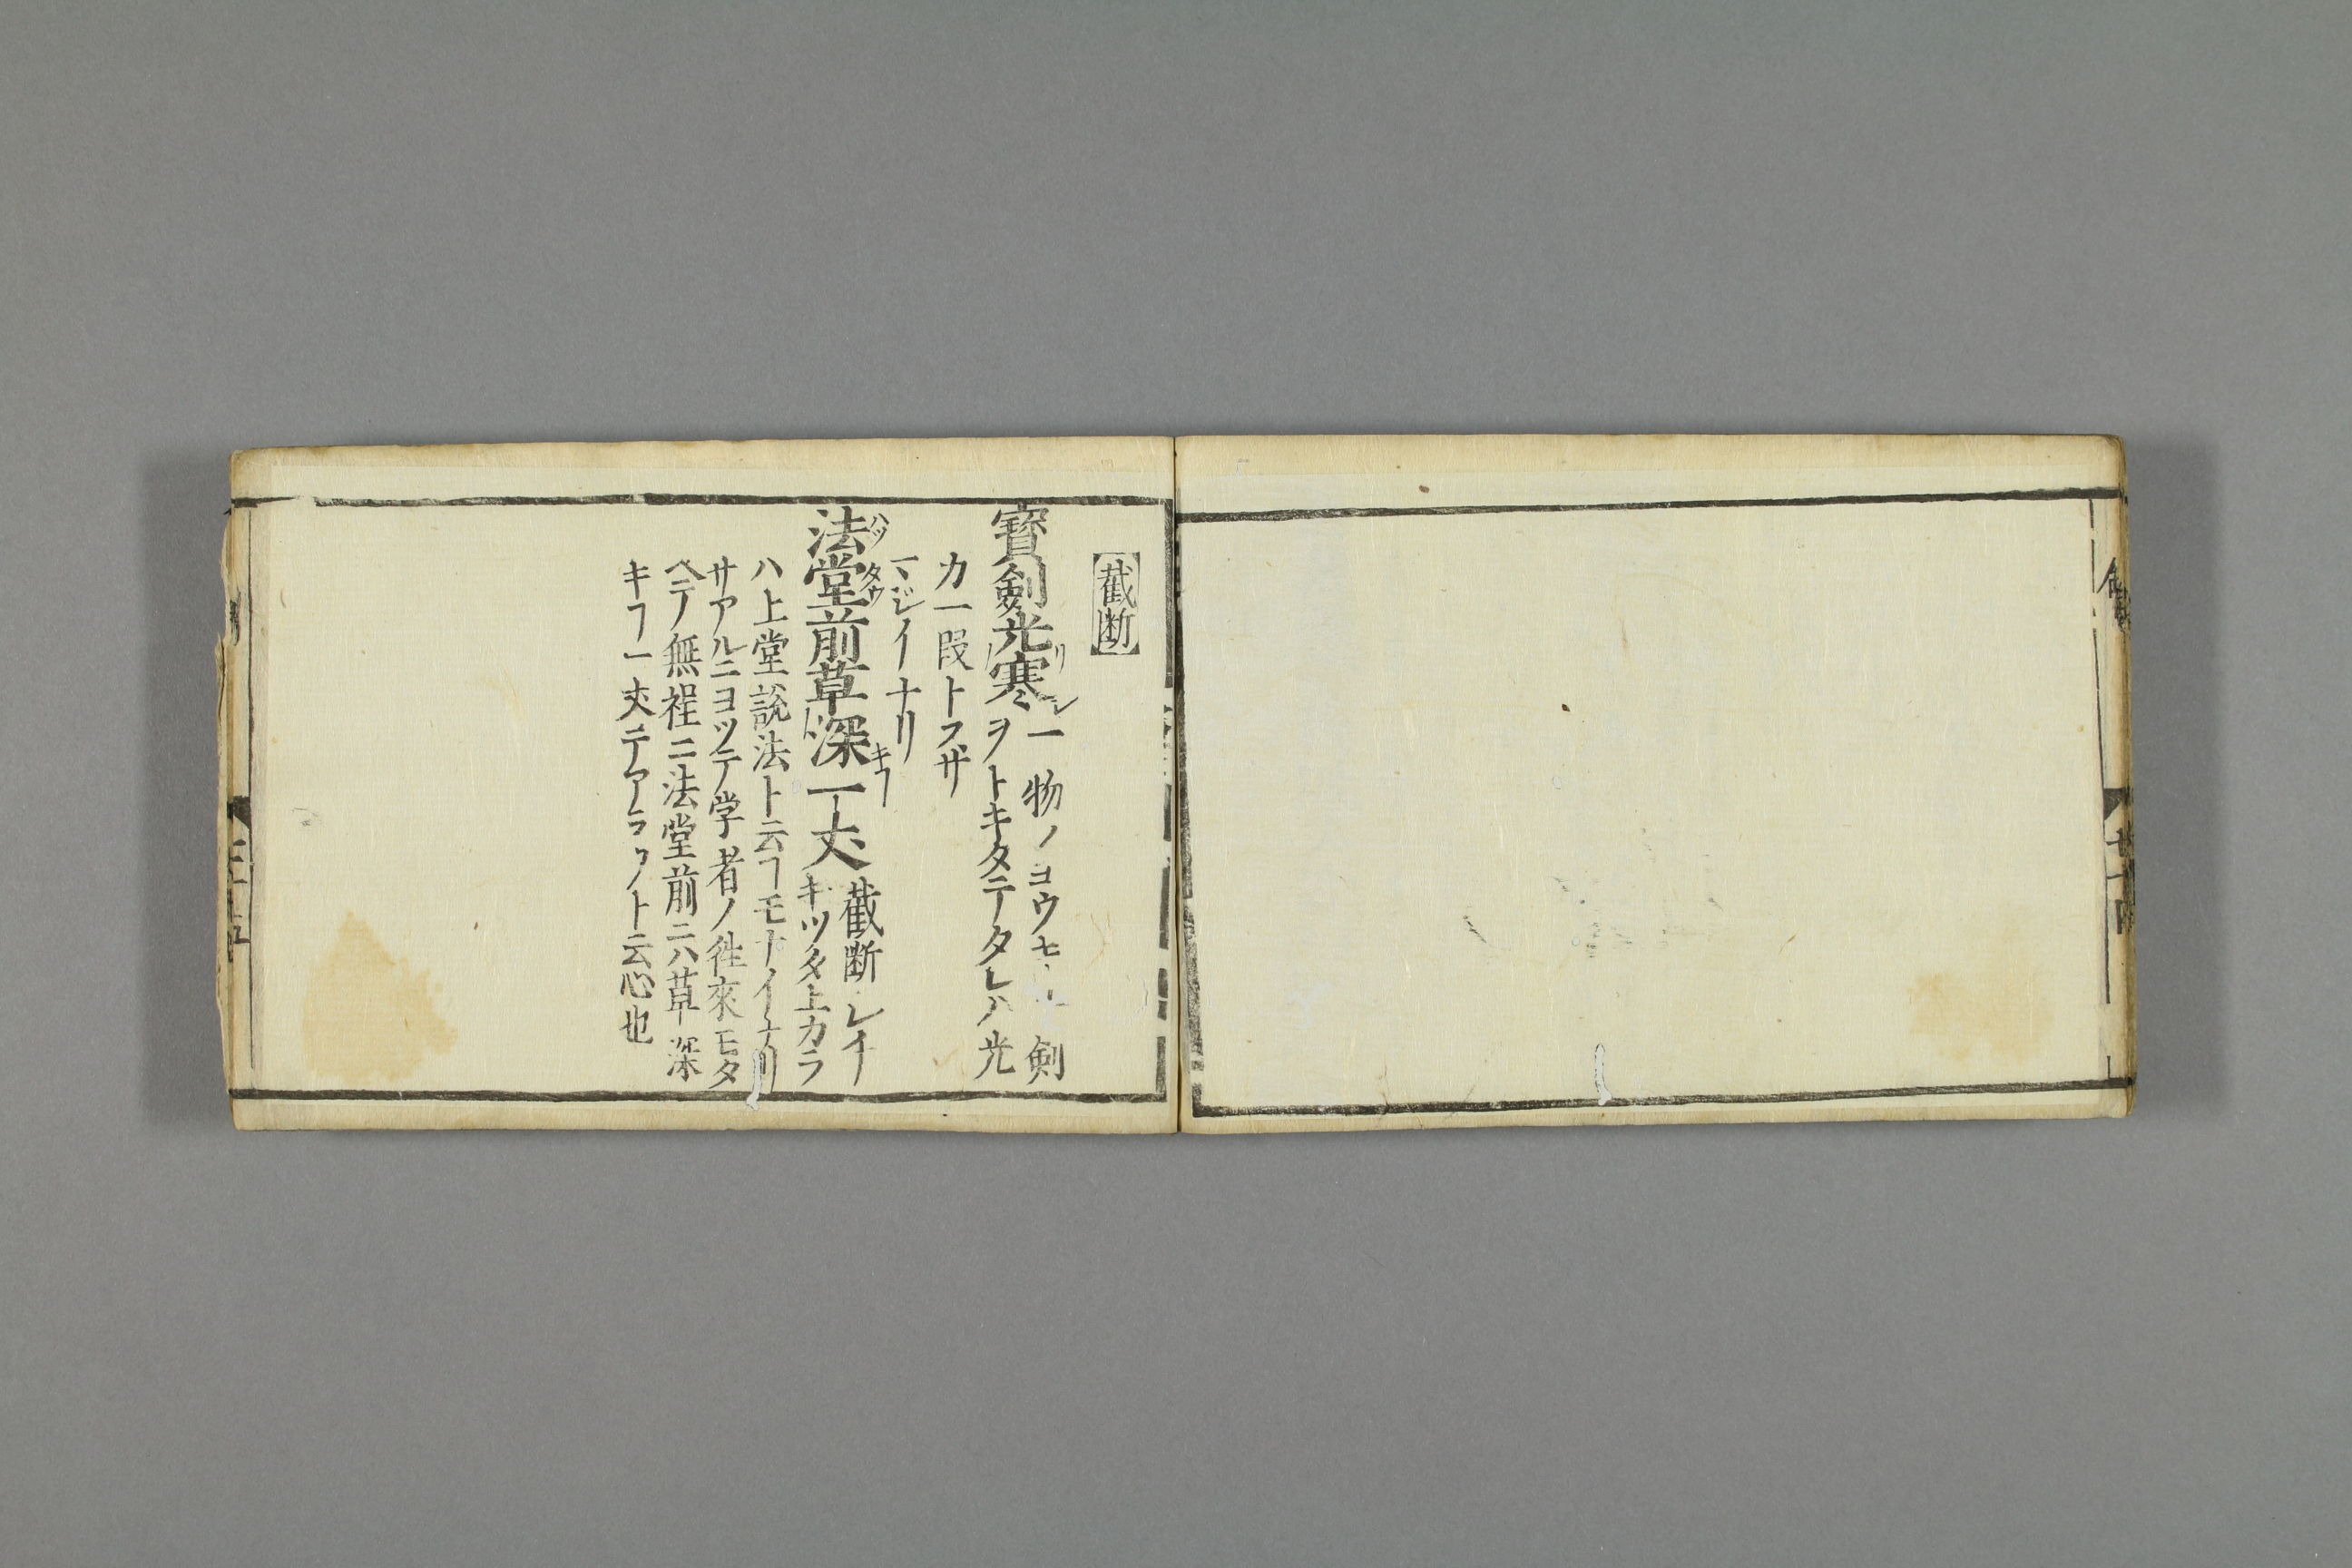 截断
寳劍光寒 一物ノヨウキ 剣
ヲトキタテタレハ光
カ一段トスサ
マジイナリ
法堂前草深一丈 截断 レイ
キツタ上カラ
ハ上堂説法ト云ヿモナイナリ
サアルニヨツテ学者ノ徃來モタ
ヘテノ無程ニ法堂前ニハ草深
キヿ一丈デアラウト云心也